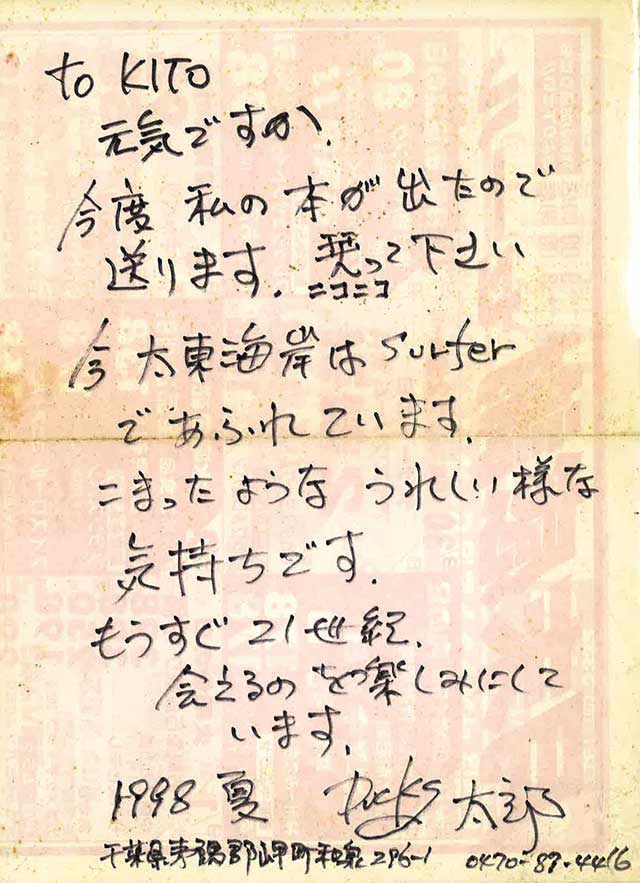 to KITO
元気ですか、
今度 私の 本が 出たので
送ります. 見って下さい
ニコニコ
今 太東海岸は Surfer
であふれています.
こまったような うれしい様な
気持ちです.
もうすぐ 21世紀.
会えるのを楽しみにして
います.
1998 夏 太郎
千葉県夷隅郡岬町和泉 296-1 0470-87-4416